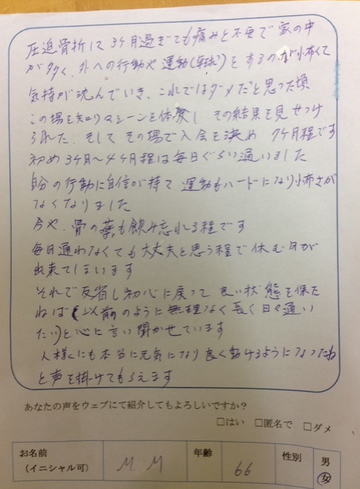 圧迫骨折にて3ヶ月過ぎても痛みと不安で家の中
が多く、外への行動や運動(卓球)をするのが怖くて
気持が沈んでいき、これではダメだと思った頃
この場を知りマシーンを体験し その結果を見せつけ
られた、そして その場で入会を決め 7ヶ月程です
初め3ヶ月〜4ヶ月程は毎日ぐらい通いました
自分の行動に自信が持て 運動もハードになり怖さが
なくなりました
今や、骨の薬も飲み忘れる程です
毎日通わなくても大丈夫と思う程で休む日が
出来てしまいます
それで反省し初心に戻って 良い状態を保た
ねば(以前のように無理なく長く日々通い
たい)と心に言い聞かせています
人様にも本当に元気になり良く動けるようになったね
と声を掛けてもらえます
あなたの声をウェブにて紹介してもよろしいですか?
□はい □匿名で □ダメ
お名前 (イニシャル可) M M 年齢 66 性別 男 女